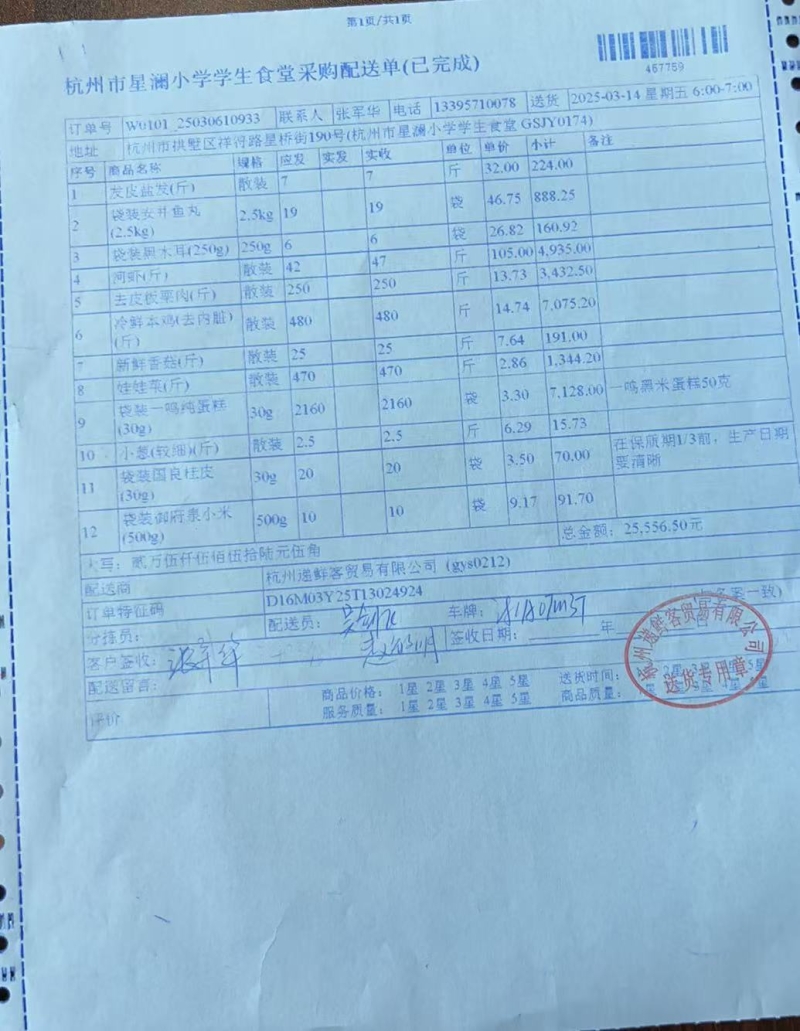 第1页/共1页
杭州市星澜小学学生食堂采购配送单(已完成)
457759
订单号 W0101_25030610933 联系人 张军华 电话 13395710078 送货 2025-03-14 星期五 6:00-7:00
地址 杭州市拱墅区祥符路星桥街190号(杭州市星澜小学学生食堂 GSJY0174)
序号 商品名称 规格 应发 实发 实收 单位 单价 小计 备注
1 发皮 (斤) 散装 7 7 斤 32.00 224.00
2 袋装安井鱼丸(2.5kg) 2.5kg 19 19 袋 46.75 888.25
3 袋装黑木耳(250g) 250g 6 6 袋 26.82 160.92
4 河虾(斤) 散装 42 47 斤 105.00 4,935.00
5 去皮板栗肉(斤) 散装 250 250 斤 13.73 3,432.50
6 冷鲜本鸡(去内脏)(斤) 散装 480 480 斤 14.74 7,075.20
7 新鲜香菇(斤) 散装 25 25 斤 7.64 191.00
8 娃娃菜(斤) 散装 470 470 斤 2.86 1,344.20
9 袋装一鸣纯蛋糕(30g) 30g 2160 2160 袋 3.30 7,128.00 一鸣黑米蛋糕50克
10 小葱(较细)(斤) 散装 2.5 2.5 斤 6.29 15.73
11 袋装国良桂皮(30g) 30g 20 20 袋 3.50 70.00 在保质期1/3前，生产日期要清晰
12 袋装御府泉小米(500g) 500g 10 10 袋 9.17 91.70
总金额：25,556.50元
大写：贰万伍仟伍佰伍拾陆元伍角
配送商 杭州递鲜客贸易有限公司 (gys0212)
订单特征码 D16M03Y25T13024924
分拣员： 配送员： 车牌： 备案一致)
客户签收： 张军华 签收日期： 年
配送留言：
评价 商品价格： 1星 2星 3星 4星 5星 送货时间： 2星 3星 4星 5星
服务质量： 1星 2星 3星 4星 5星 商品质量：
杭州递鲜客贸易有限公司
送货专用章